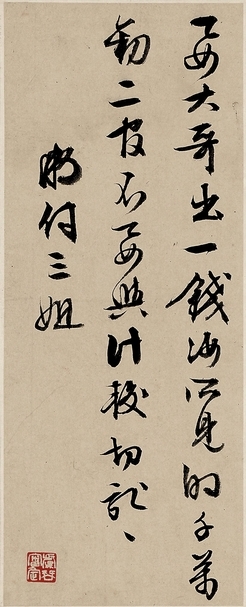 要大哥出一錢汝所見的千萬
勸二官不要與計較切記、、
付三姐